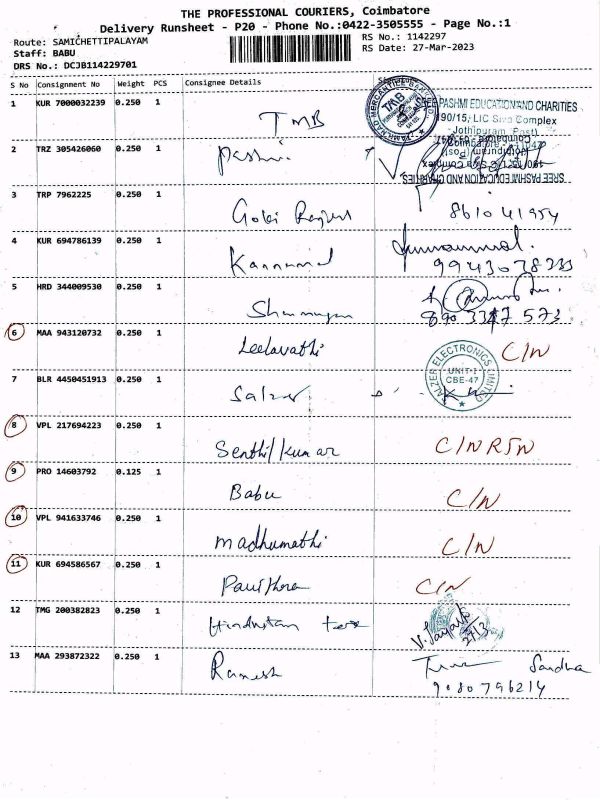 THE PROFESSIONAL COURIERS, Coimbatore
Delivery Runsheet - P20 - Phone No.:0422-3505555 - Page No.:1
Route: SAMICHETTIPALAYAM
RS No.: 1142297
Staff: BABU
RS Date: 27-Mar-2023
DRS No.: DCJB114229701
S No Consignment No Weight PCS Consignee Details
1 KUR 7000032239 0.250 1 TMB
SREE PASHMI EDUCATION AND CHARITIES
190/15, LIC Siva Complex
Jothipuram Post
2 TRZ 305426060 0.250 1 Pashmi
3 TRP 7962225 0.250 1 Gobi 861041954
4 KUR 694786139 0.250 1 Kannammal
9943078333
5 HRD 344009530 0.250 1 Shanmugam
890 3347 573
6 MAA 943120732 0.250 1 Leelavathi C/N
7 BLR 4450451913 0.250 1 Salzer
SALZER ELECTRONICS LIMITED
UNIT-I
CBE-47
8 VPL 217694223 0.250 1 Senthil kumar C/N RTN
9 PRO 14603792 0.125 1 Babu C/N
10 VPL 941633746 0.250 1 madhumathi C/N
11 KUR 694586567 0.250 1 Pavithra C/N
12 TMG 200382823 0.250 1 Hindustan Tex
13 MAA 293872322 0.250 1 Ramesh
9080796214